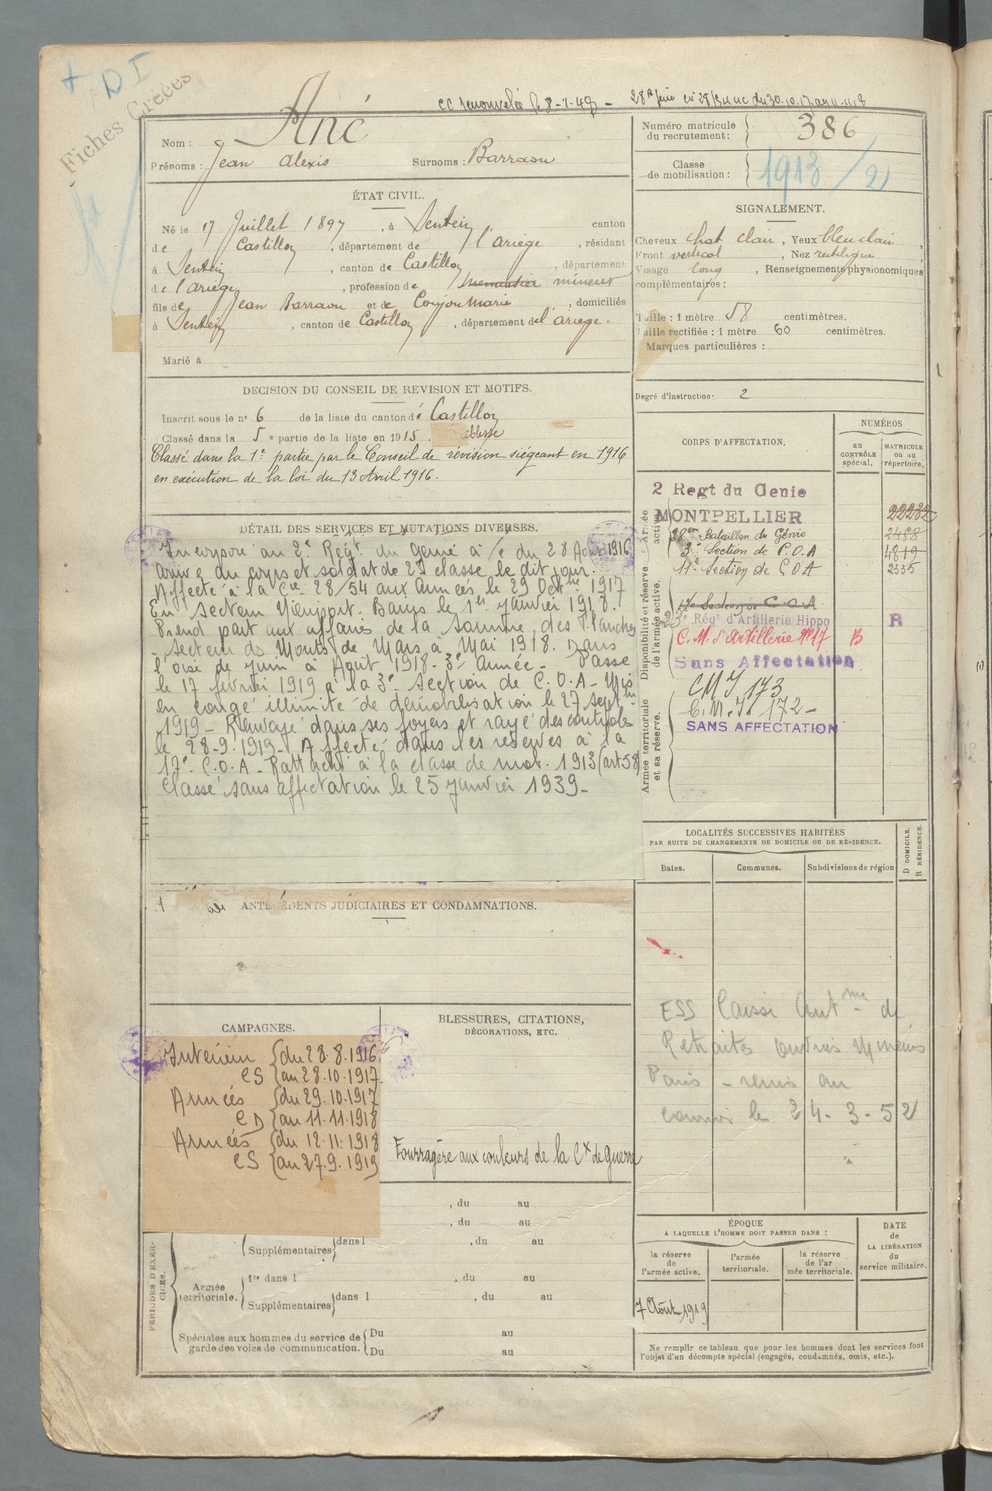 + D I
Fiches Créées
CC renouvelée le 8-1-49 -
Nom : Ané
Prénoms : Jean Alexis Surnoms : Barraou
Numéro matricule du recrutement : 386
Classe de mobilisation : 1913 / 21
ÉTAT CIVIL.
Né le 17 Juillet 1897, à Sentein, canton
de Castillon, département de l'Ariège, résidant
à Sentein, canton de Castillon, département
de l'Ariège, profession de mineur
fils de Jean Barraou et de Marie, domiciliés
à Sentein, canton de Castillon, département de l'Ariège.
Marié à
SIGNALEMENT.
Cheveux chat. clair, Yeux bleu clair,
Front vertical, Nez rectiligne
Visage long, Renseignements physionomiques
complémentaires :
Taille : 1 mètre 58 centimètres.
Taille rectifiée : 1 mètre 60 centimètres.
Marques particulières :
Degré d'instruction : 2
DÉCISION DU CONSEIL DE RÉVISION ET MOTIFS.
Inscrit sous le n° 6 de la liste du canton de Castillon
Classé dans la 5e partie de la liste en 1915.
Classé dans la 1e partie par le Conseil de révision siégeant en 1916
en exécution de la loi du 13 Avril 1916.
CORPS D'AFFECTATION.
NUMÉROS
au CONTRÔLE spécial.
MATRICULE ou au répertoire.
Armée active.
2 Regt du Genie
MONTPELLIER 22232
Bataillon de Génie 2458
3e Section de C.O.A 4919
17e Section de C.O.A 2335
Disponibilité et réserve de l'armée active.
17e Section de C.O.A.
23e Régt d'Artillerie Hippo R
C.M. d'Artillerie N°17 B
Sans Affectation
Armée territoriale et sa réserve.
CMI 173
C.M.I. 172 -
SANS AFFECTATION
DÉTAIL DES SERVICES ET MUTATIONS DIVERSES.
Incorporé au 2e Régt du Génie à/c du 28 Août 1916
arrivé du corps et soldat de 2e classe le dit jour.
Affecté à la Cie 28/54 aux Armées le 29 Octbre 1917
En secteur Nieuport. Bains le 1er Janvier 1918.
Prend part aux affaires de la Somme, des Flandres
- secteur de Monts de Mars à Mai 1918. Dans
l'Oise de Juin à Août 1918. 3e Armée - Passé
le 17 février 1919 à la 3e Section de C.O.A - Mis
en congé illimité de démobilisation le 27 Septbre
1919 - Renvoyé dans ses foyers et rayé des contrôles
le 28-9-1919 - Affecté dans les réserves à la
17e C.O.A - Rattaché à la classe de mob. 1913 (art 58)
Classé sans affectation le 25 Janvier 1939 -
LOCALITÉS SUCCESSIVES HABITÉES
PAR SUITE DE CHANGEMENTS DE DOMICILE OU DE RÉSIDENCE.
Dates. Communes. Subdivisions de région
D DOMICILE. R RÉSIDENCE.
ANTÉCÉDENTS JUDICIAIRES ET CONDAMNATIONS.
ESS Caisse Autme de
Retraites ouvriers Mineurs
Paris - remis au
courrier le 24-3-52
CAMPAGNES.
Intérieur du 28.8.1916
CS au 28.10.1917
Armées du 29.10.1917
CD au 11.11.1918
Armées du 12.11.1918
CS au 27.9.1919
BLESSURES, CITATIONS,
DÉCORATIONS, ETC.
Fourragère aux couleurs de la Cx de Guerre
, du au
, du au
PÉRIODES D'EXERCICES.
Supplémentaires dans l , du au
Armée territoriale.
1re dans l , du au
Supplémentaires dans l , du au
Spéciales aux hommes du service de
garde des voies de communication.
Du au
Du au
ÉPOQUE
A LAQUELLE L'HOMME DOIT PASSER DANS :
la réserve de l'armée active.
l'armée territoriale.
la réserve de l'armée territoriale.
DATE de LA LIBÉRATION du service militaire.
7 Août 1919
Ne remplir ce tableau que pour les hommes dont les services font
l'objet d'un décompte spécial (engagés, condamnés, omis, etc.).